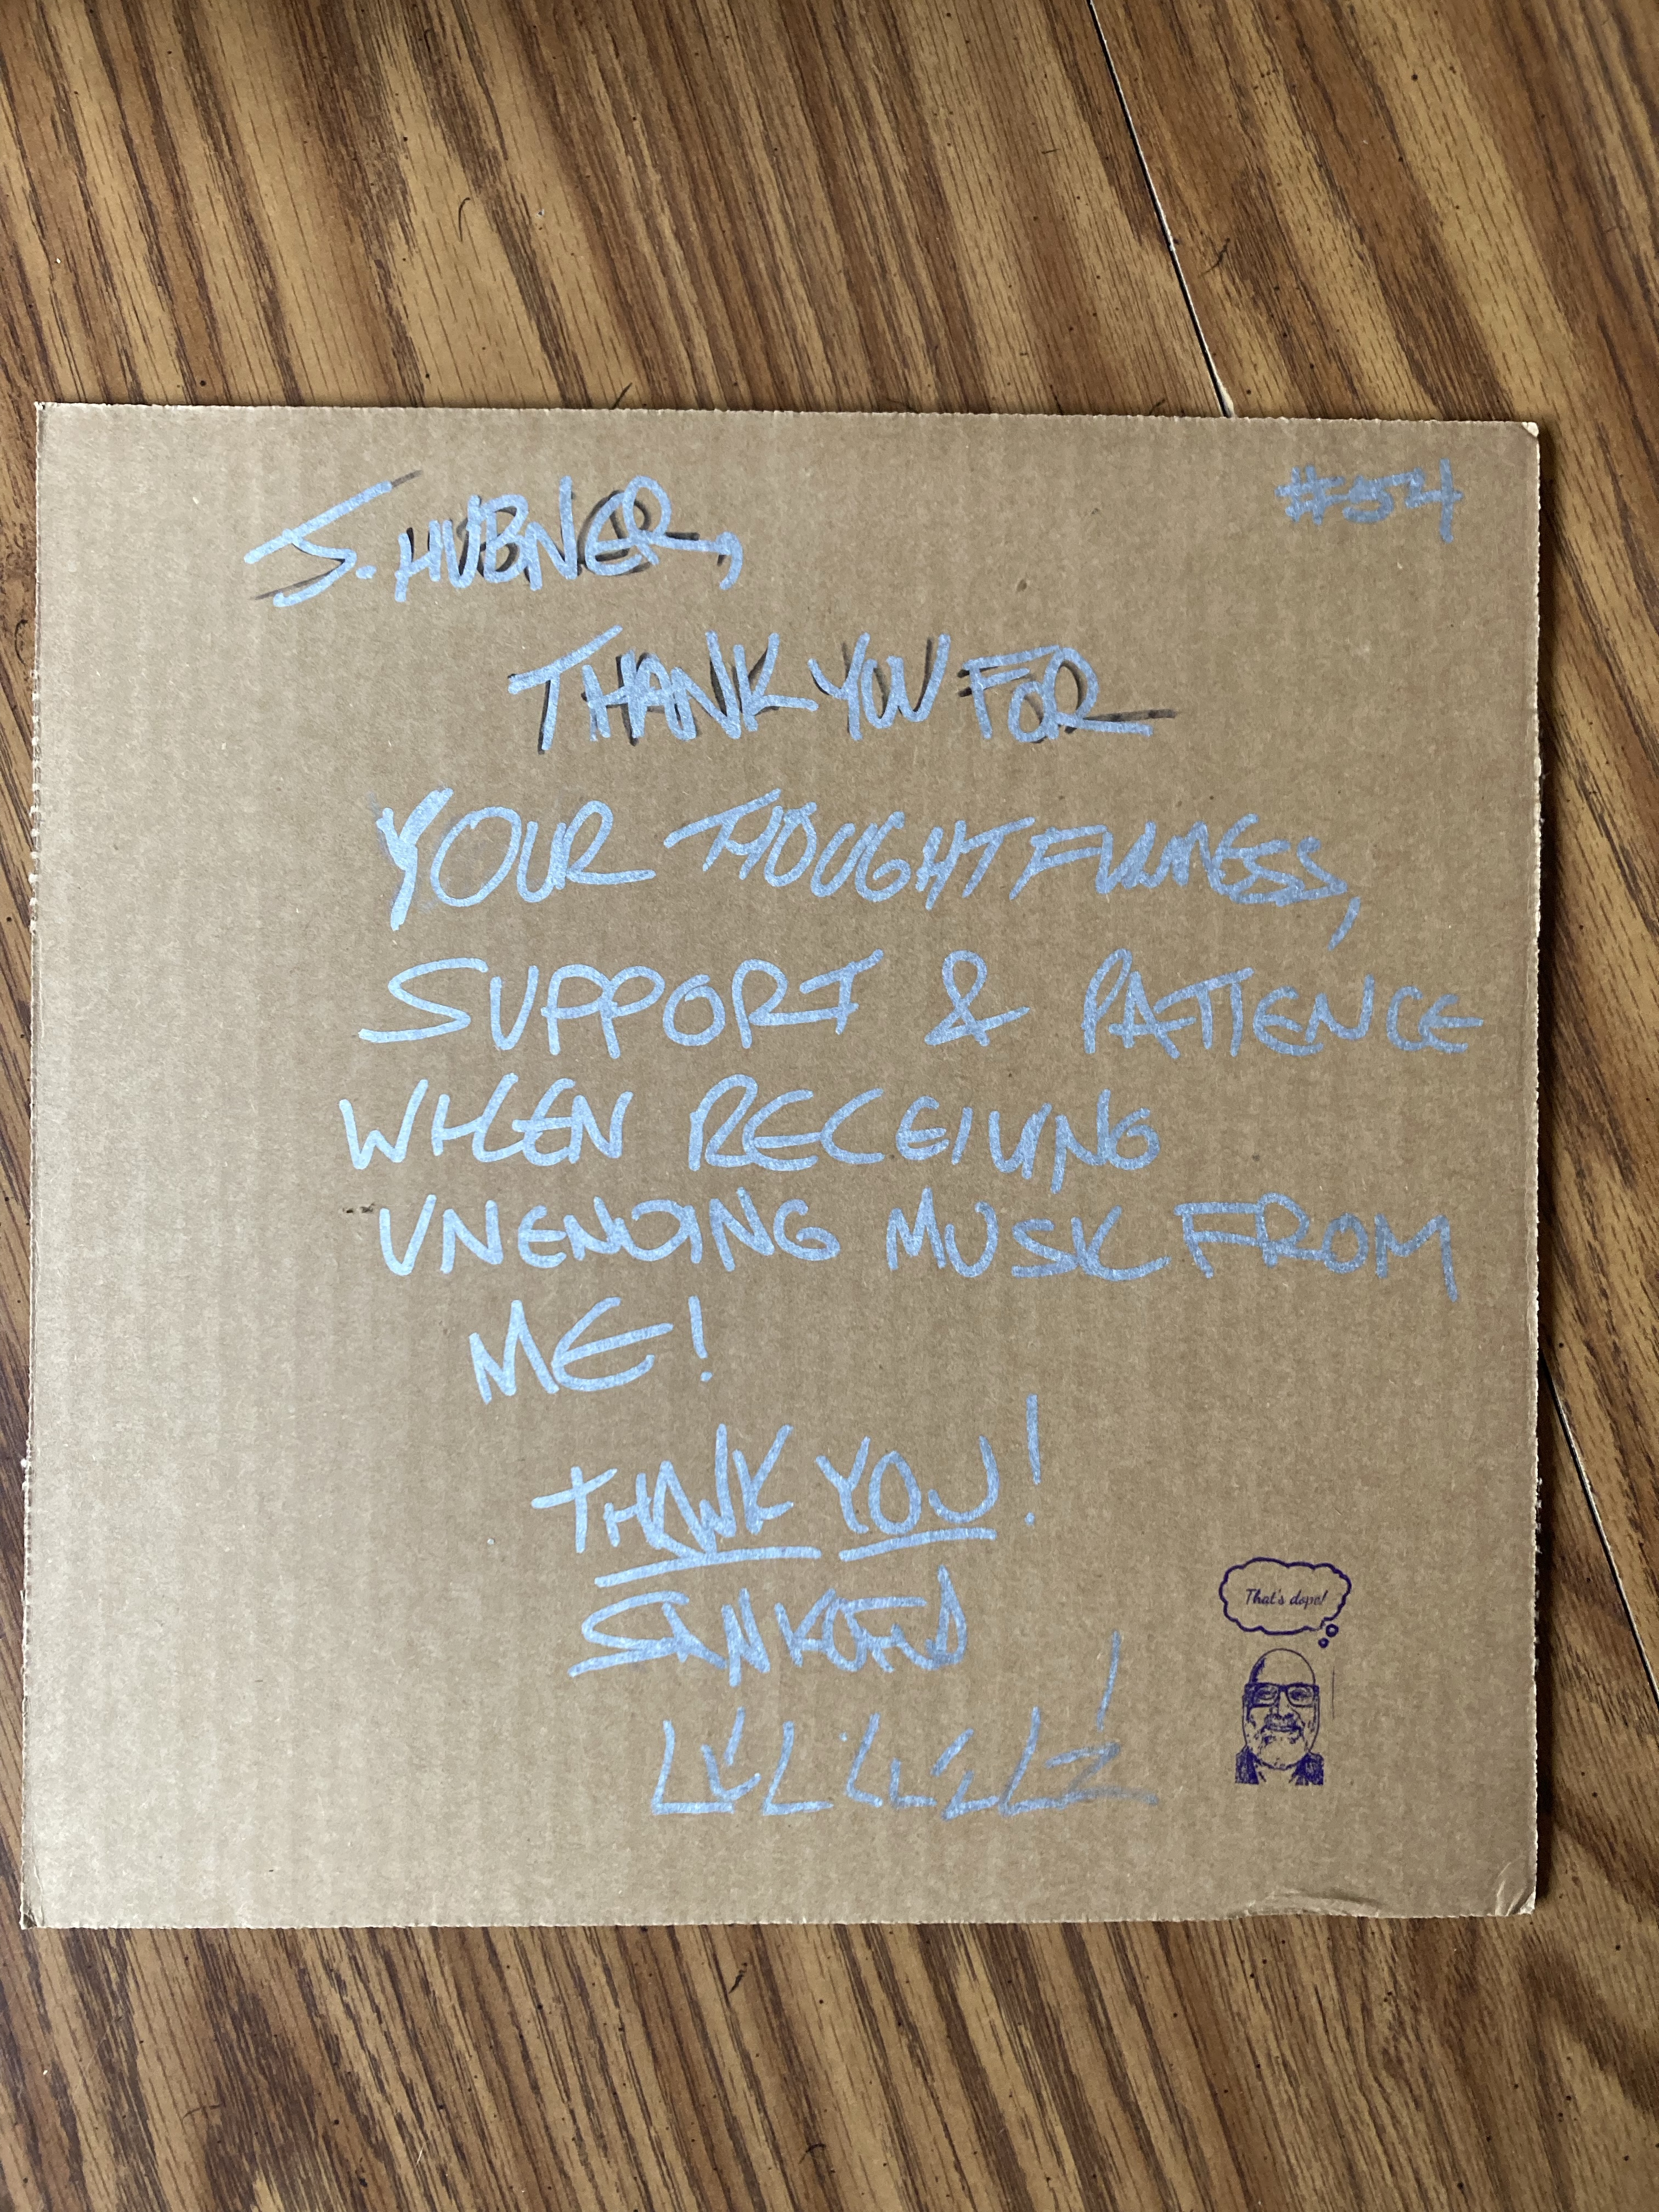 #54
J. HUBNER,
THANK YOU FOR
YOUR THOUGHTFULNESS,
SUPPORT & PATIENCE
WHEN RECEIVING
UNENDING MUSIC FROM
ME!
THANK YOU!
That's dope!